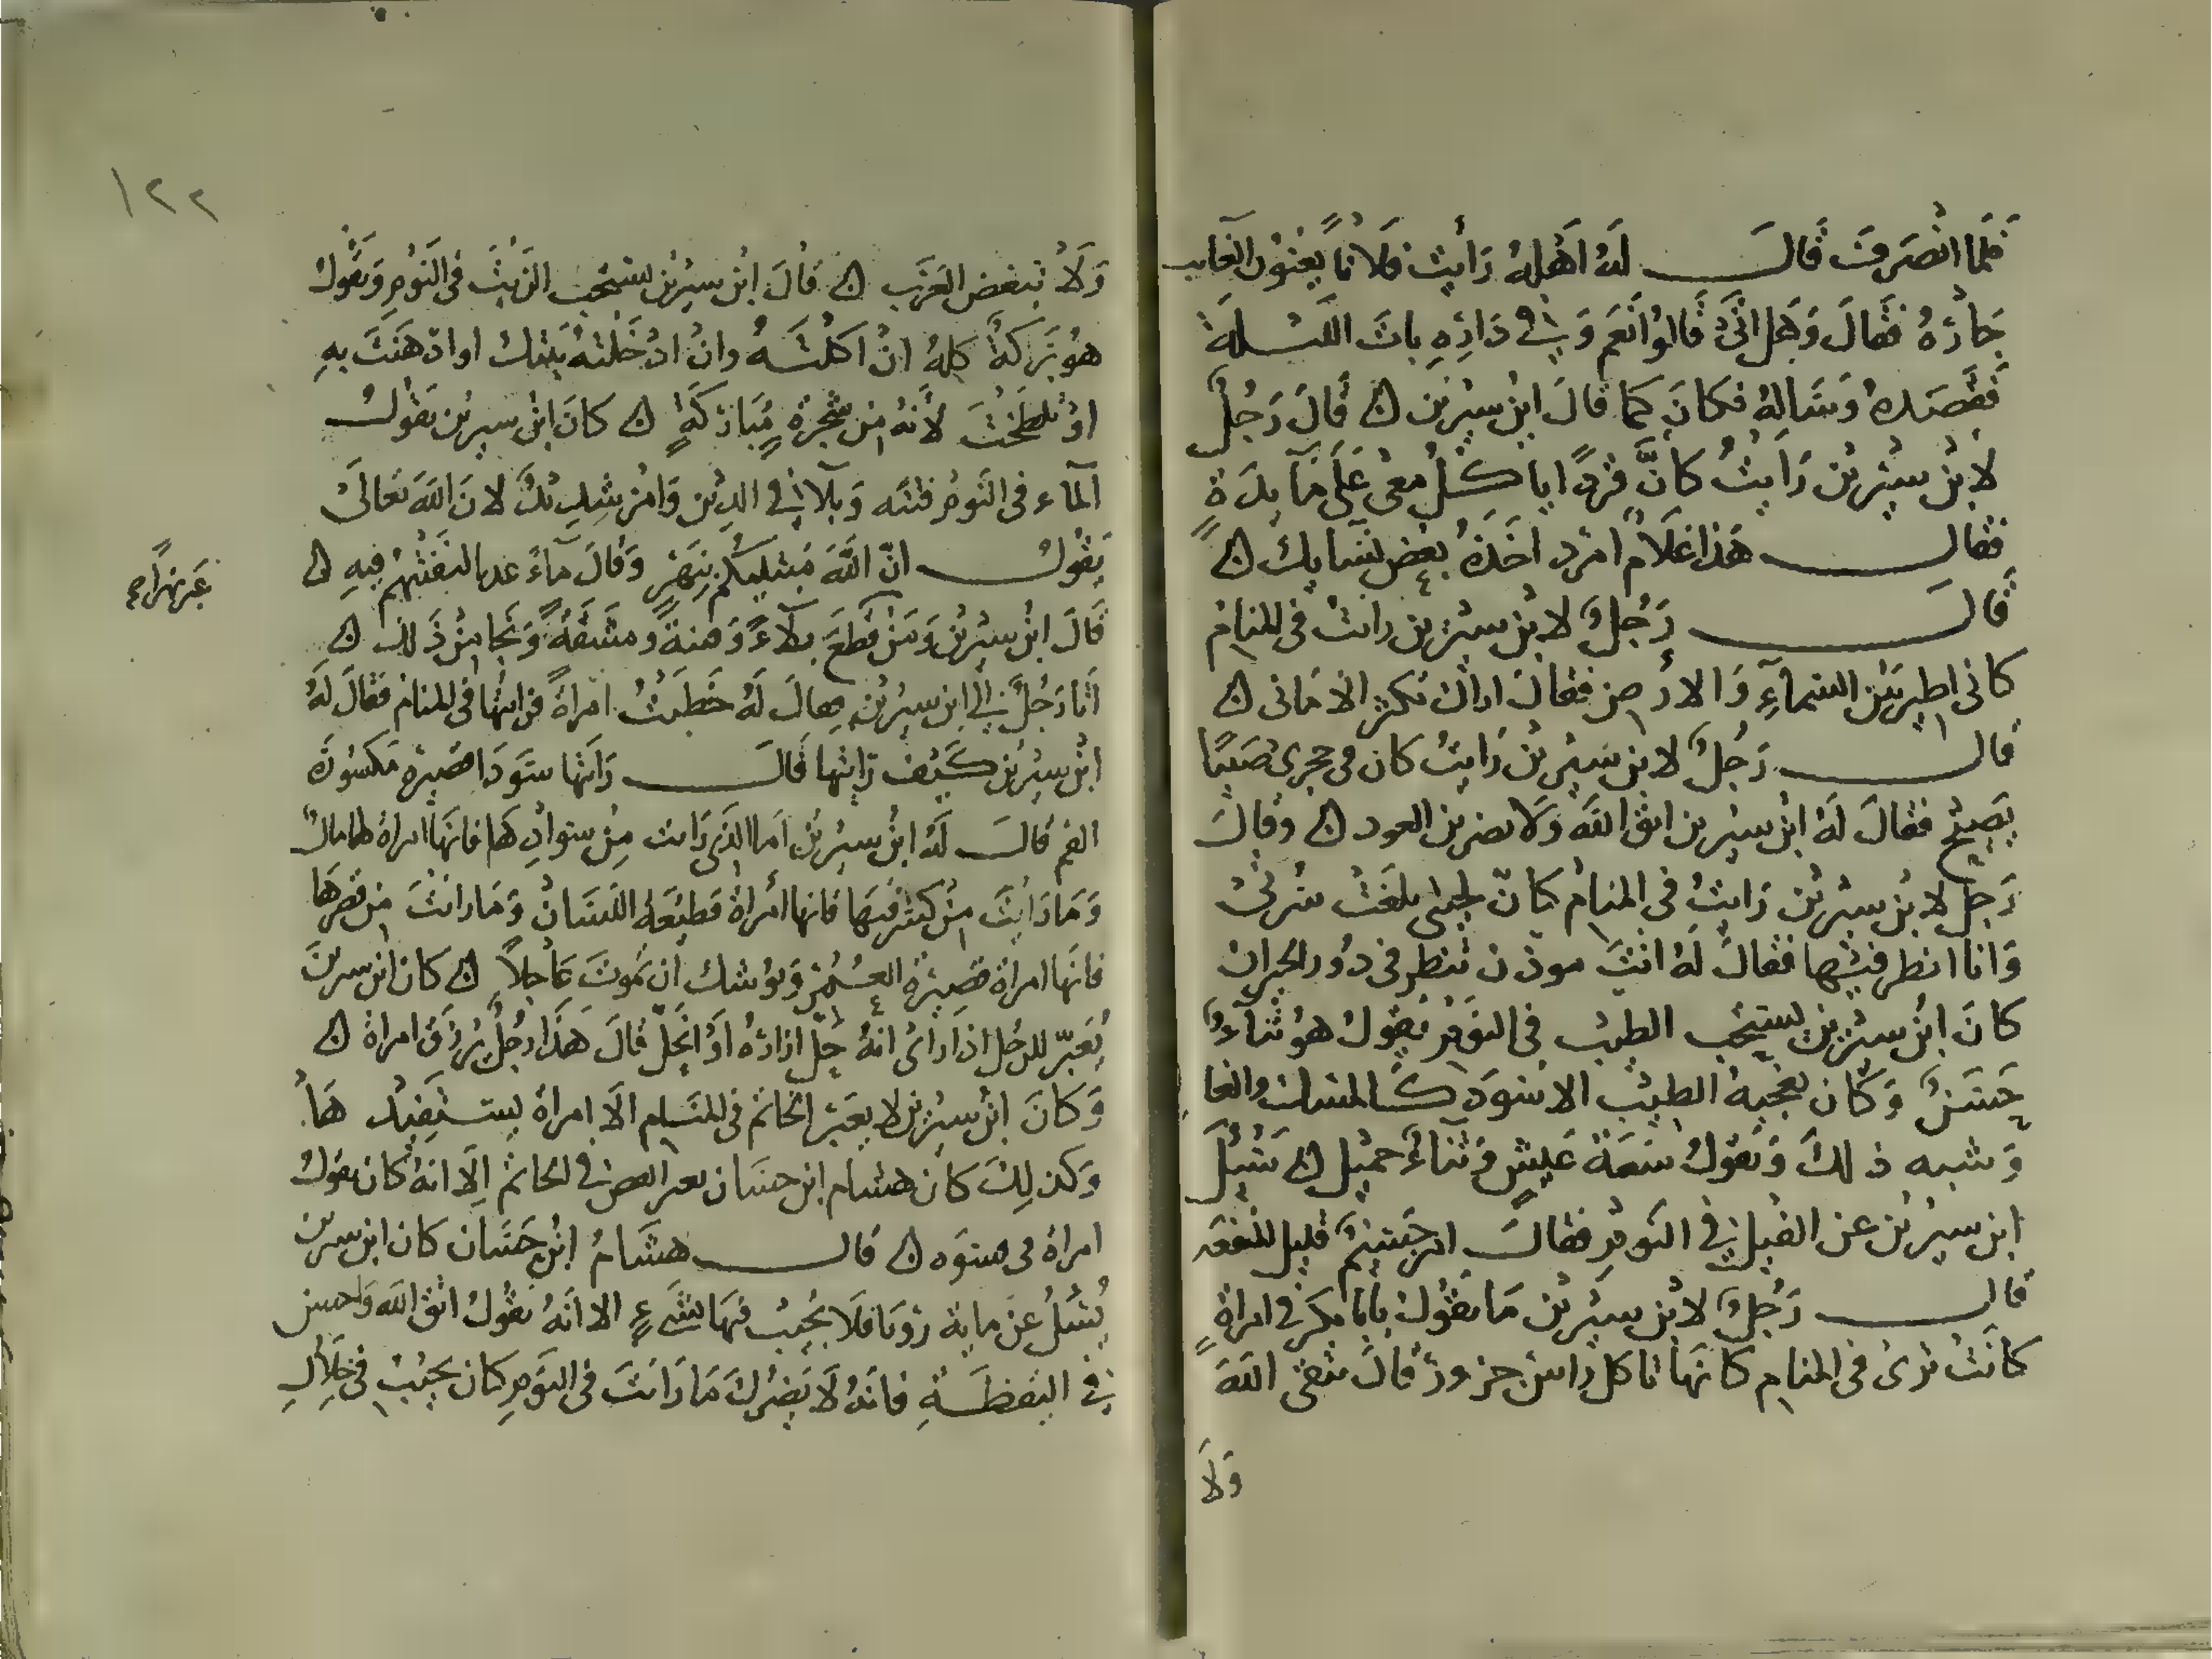 فلما انصرفت قال له اهله رايت فلانا يعنون الغايب
جاره فقال وهل اتى قالوا نعم وفي داره بات الليلة
فقصده وساله فكان كما قال ابن سيرين قال رجل
لابن سيرين رايت كان قردا ياكل معي على مايدة
فقال هذا غلام امرد اخذه بعض نسايك
قال رجل لابن سيرين رايت في المنام
كاني اطير بين السماء والارض فقال اراك تكثر الاماني
قال رجل لابن سيرين رايت كان في حجري صبيا
يصيح فقال له ابن سيرين اتق الله ولا تضرب العود وقال
رجل لابن سيرين رايت في المنام كان لحيتي بلغت سرتي
وانا انظر فيها فقال له انت موذن تنظر في دور الجيران
كان ابن سيرين يستحب الطيب في النوم يقول هو ثناء
حسن وكان يعجبه الطيب الاسود كالمسك والغا
وشبه ذلك ويقول سعة عيش وثناء جميل سئل
ابن سيرين عن الفيل في النوم فقال امر جسيم قليل المنفعه
قال رجل لابن سيرين ما تقول يابا بكر في امراة
كانت ترى في المنام كانها تاكل راس جزور قال تتقي الله
ولا
١٢٢
ولا تبغض العرب قال ابن سيرين يستحب الزيت في النوم ويقول
هو بركة كله ان اكلته وان ادخلته بيتك او ادهنت به
او تلطخت لانه من شجرة مباركة كان ابن سيرين يقول
الماء في النوم فتنه وبلاء في الدين وامر شديد لان الله تعالى
يقول ان الله مبتليكم بنهر وقال ماء غدقا لنفتنهم فيه
قال ابن سيرين ومن قطع بلاء ومشقة ونجا من ذلك
اتا رجل الى ابن سيرين فقال له خطبت امراة فرايتها في المنام فقال له
ابن سيرين كيف رايتها قال رايتها سودا قصيرة مكسورة
الفم قال له ابن سيرين اما الذي رايت من سوادها فانها امراة لها مال
وما رايت من كسر فيها فانها امراة قطيعة اللسان وما رايت من قصرها
فانها امراة قصيرة العمر ويوشك ان تموت عاجلا كان ابن سيرين
يعبر للرجل اذا راى انه حل ازاره او انحل قال هذا رجل يرزق امراة
وكان ابن سيرين لا يعبر الخاتم في المنام الا امراة يستفيدها
وكذلك كان هشام ابن حسان يعبر الفص في الخاتم الا انه كان يقول
امراة في قال هشام ابن حسان كان ابن سيرين
يسئل عن ماية رويا فلا يجيب فيها بشيء الا انه يقول اتق الله واحسن
في اليقظة فانه لا يضرك ما رايت في النوم كان يجيب في خلال